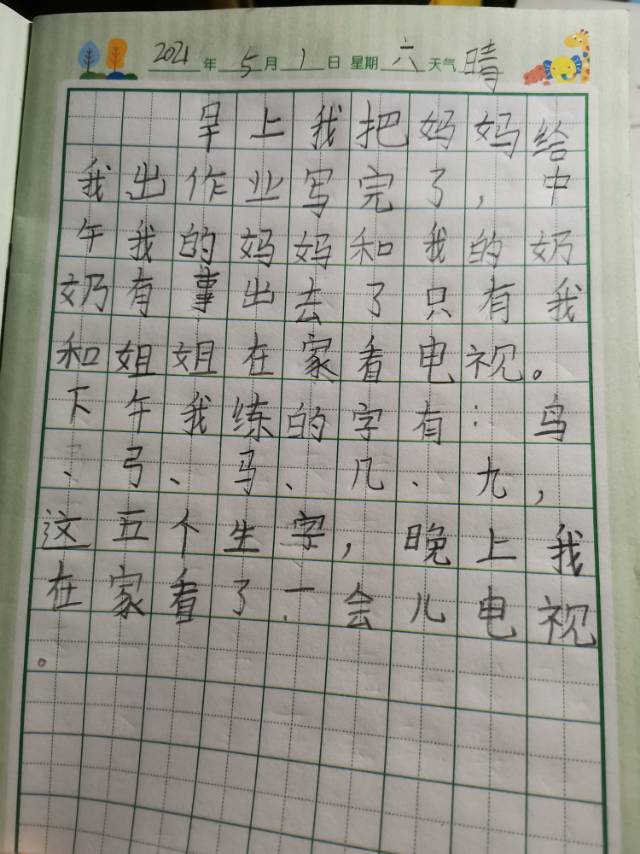 2021年5月1日 星期六 天气晴
早上我把妈妈给
我出作业写完了，中
午我的妈妈和我的奶
奶有事出去了只有我
和姐姐在家看电视。
下午我练的字有：鸟
、弓、马、几、九，
这五个生字，晚上我
在家看了一会儿电视
。